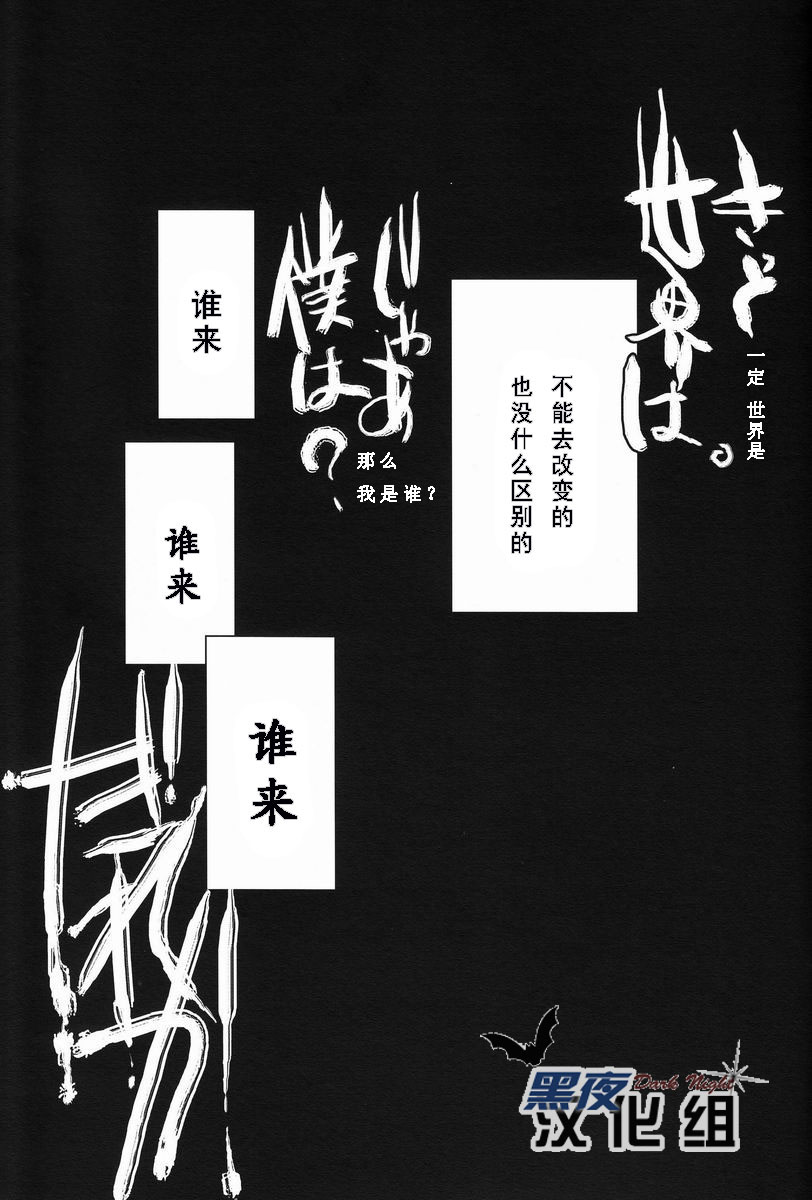 きっと
世界は。
一定 世界是
不能去改变的
也没什么区别的
じゃあ
僕は？
那么
我是谁？
谁来
谁来
谁来
だれか
黑夜
Dark Night
汉化组